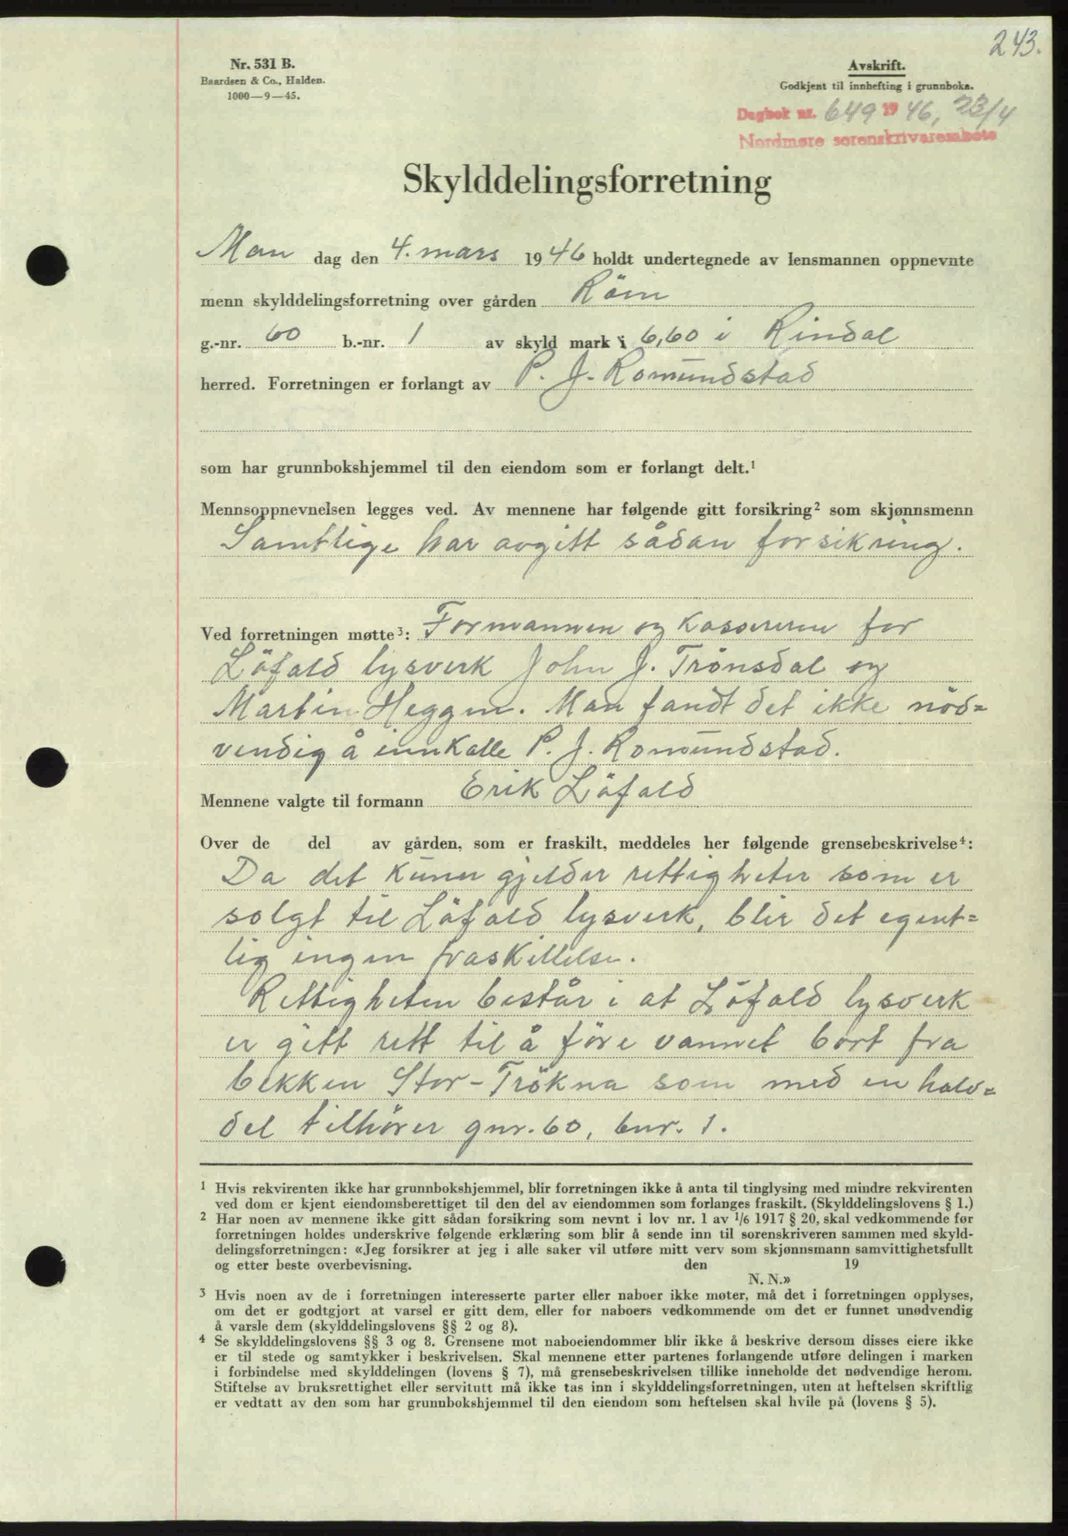 243.
Nr. 531 B.
Baardsen & Co., Halden.
1000—9—45.
Avskrift.
Godkjent til innhefting i grunnboka.
Dagbok nr. 649 1946, 23/4
Nordmøre sorenskrivarembete
Skylddelingsforretning
Man dag den 4. mars 1946 holdt undertegnede av lensmannen oppnevnte
menn skylddelingsforretning over gården Röen
g.-nr. 60 b.-nr. 1 av skyld mark 6,60 i Rindal
herred. Forretningen er forlangt av P. J. Romundstad
som har grunnbokshjemmel til den eiendom som er forlangt delt.¹
Mennsoppnevnelsen legges ved. Av mennene har følgende gitt forsikring² som skjønnsmenn
Samtlige har avgitt sådan forsikring.
Ved forretningen møtte³: Formannen og kassereren for
Löfald lysverk John J. Trönsdal og
Martin Heggem. Man fandt det ikke nöd=
vendig å innkalle P. J. Romundstad.
Mennene valgte til formann Erik Löfald
Over de del av gården, som er fraskilt, meddeles her følgende grensebeskrivelse⁴:
Da det kuner gjelder rettigheter som er
solgt til Löfald lysverk, blir det egent=
lig ingen fraskillelse.
Rettigheten består i at Löfald lysverk
er gitt rett til å före vannet bort fra
bekken Stor-Trökna som med en halv=
del tilhörer gnr. 60, bnr. 1.
¹ Hvis rekvirenten ikke har grunnbokshjemmel, blir forretningen ikke å anta til tinglysing med mindre rekvirenten
ved dom er kjent eiendomsberettiget til den del av eiendommen som forlanges fraskilt. (Skylddelingslovens § 1.)
² Har noen av mennene ikke gitt sådan forsikring som nevnt i lov nr. 1 av 1/6 1917 § 20, skal vedkommende før
forretningen holdes underskrive følgende erklæring som blir å sende inn til sorenskriveren sammen med skyld-
delingsforretningen: «Jeg forsikrer at jeg i alle saker vil utføre mitt verv som skjønnsmann samvittighetsfullt
og etter beste overbevisning. den 19
N. N.»
³ Hvis noen av de i forretningen interesserte parter eller naboer ikke møter, må det i forretningen opplyses,
om det er godtgjort at varsel er gitt dem, eller for naboers vedkommende om det er funnet unødvendig
å varsle dem (skylddelingslovens §§ 2 og 8).
⁴ Se skylddelingslovens §§ 3 og 8. Grensene mot naboeiendommer blir ikke å beskrive dersom disses eiere ikke
er til stede og samtykker i beskrivelsen. Skal mennene etter partenes forlangende utføre delingen i marken
i forbindelse med skylddelingen (lovens § 7), må grensebeskrivelsen tillike inneholde det nødvendige herom.
Stiftelse av bruksrettighet eller servitutt må ikke tas inn i skylddelingsforretningen, uten at heftelsen skriftlig
er vedtatt av den som har grunnbokshjemmel til den eiendom som heftelsen skal hvile på (lovens § 5).